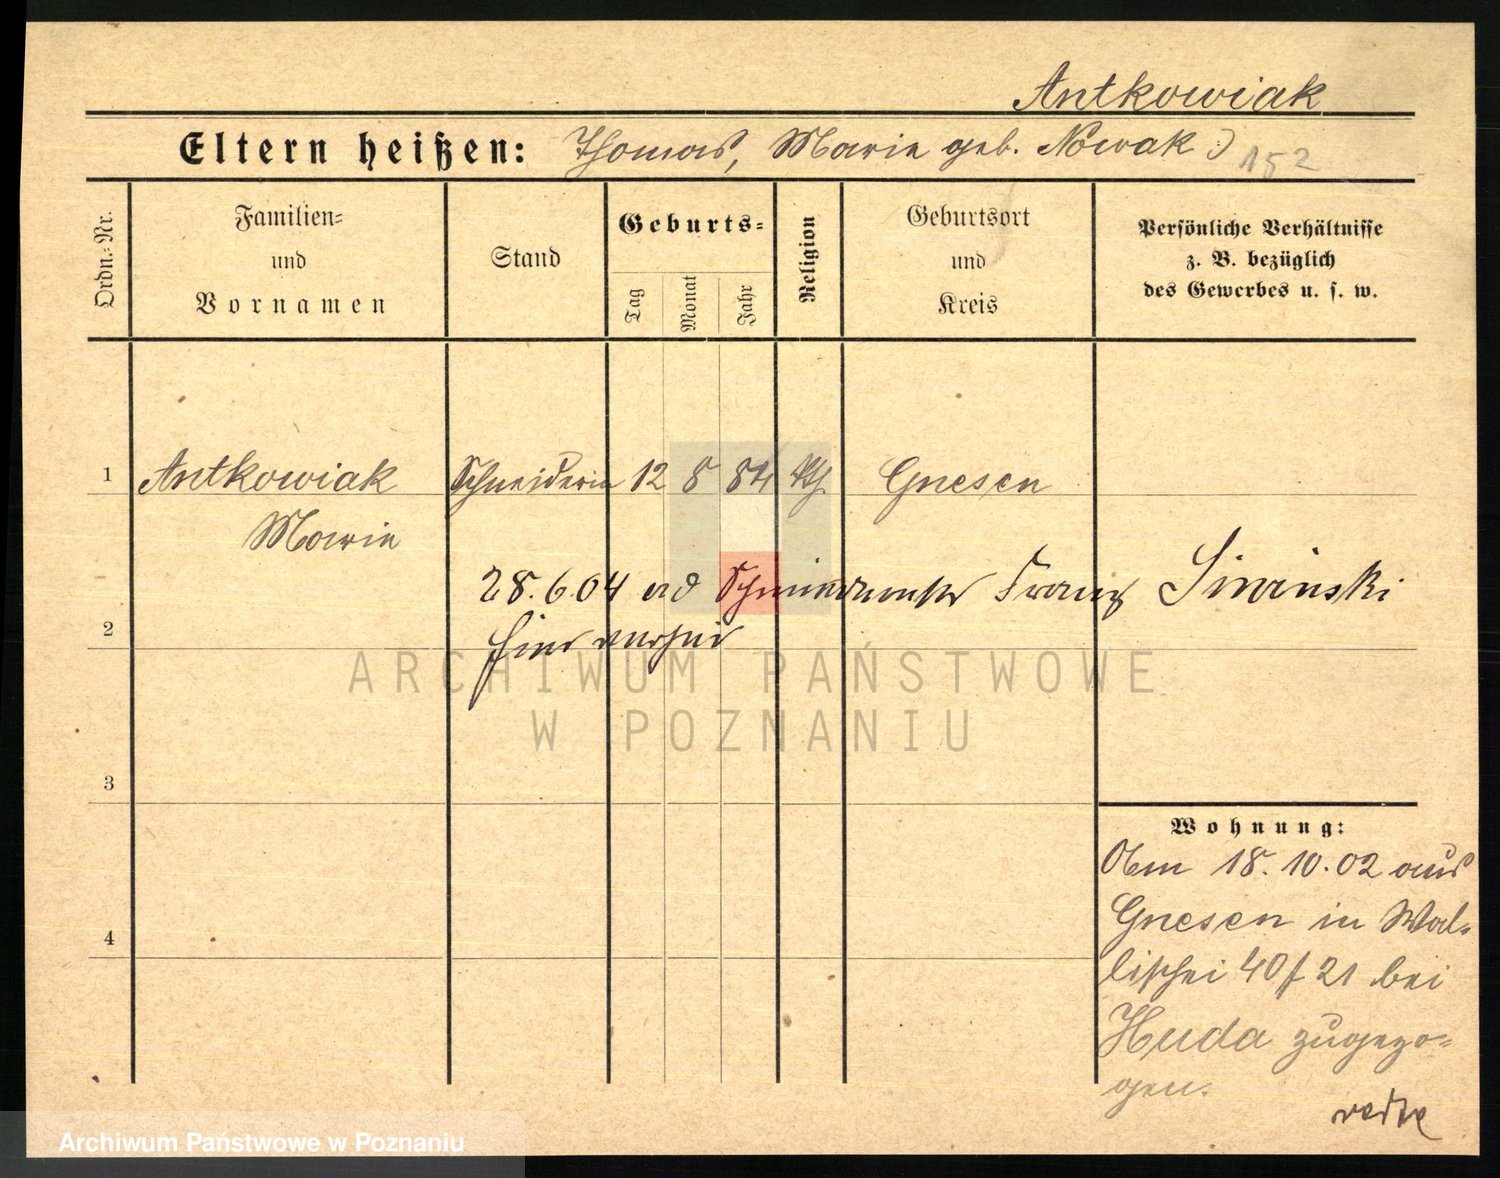 Antkowiak
Eltern heißen: Thomas, Marie geb. Nowak
152
Ordn.-Nr.
Familien-
und
Vornamen
Stand
Geburts-
Tag
Monat
Jahr
Religion
Geburtsort
und
Kreis
Persönliche Verhältnisse
z. B. bezüglich
des Gewerbes u. s. w.
1 Antkowiak Schneiderin 12 8 84 kth Gnesen
Marie
28.6.04 Franz
2 hier
ARCHIWUM PAŃSTWOWE
W POZNANIU
3
Wohnung:
Am 18.10.02 aus
Gnesen in Wal-
lischei 40/21 bei
Huda zugezo-
gen.
4
Archiwum Państwowe w Poznaniu